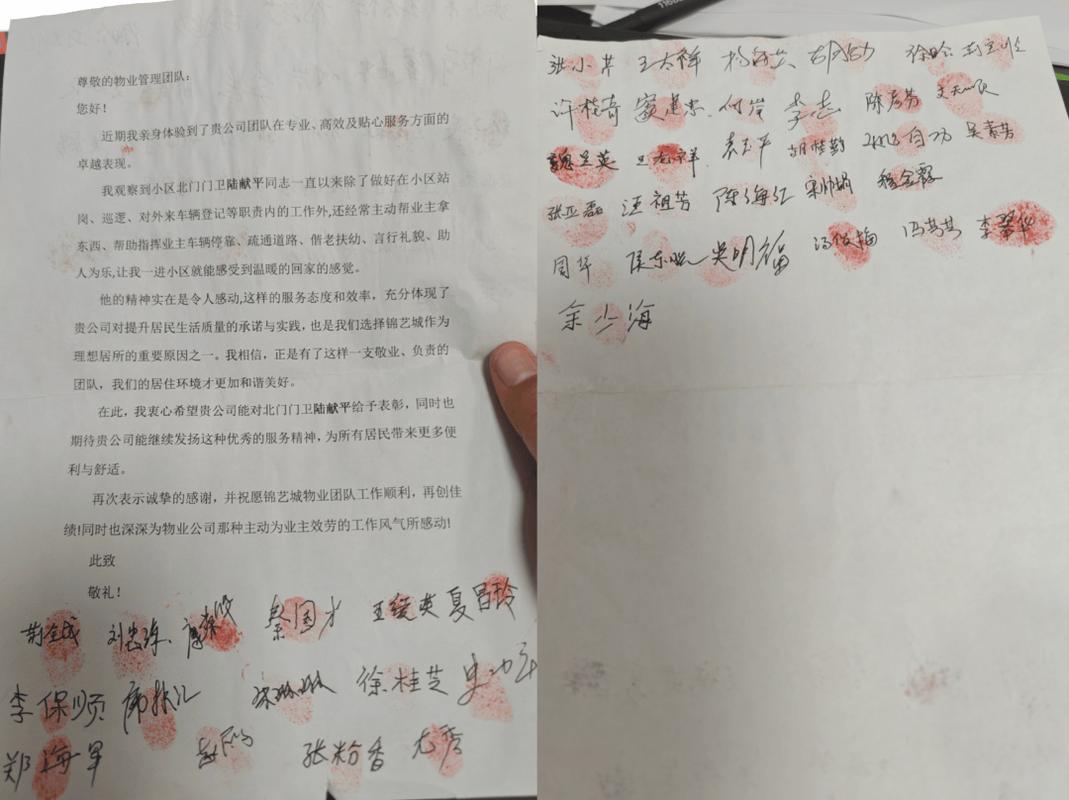 尊敬的物业管理团队：
您好！
近期我亲身体验到了贵公司团队在专业、高效及贴心服务方面的
卓越表现。
我观察到小区北门门卫陆献平同志一直以来除了做好在小区站
岗、巡逻、对外来车辆登记等职责内的工作外,还经常主动帮业主拿
东西、帮助指挥业主车辆停靠、疏通道路、偕老扶幼、言行礼貌、助
人为乐,让我一进小区就能感受到温暖的回家的感觉。
他的精神实在是令人感动,这样的服务态度和效率，充分体现了
贵公司对提升居民生活质量的承诺与实践，也是我们选择锦艺城作为
理想居所的重要原因之一。我相信，正是有了这样一支敬业、负责的
团队，我们的居住环境才更加和谐美好。
在此，我衷心希望贵公司能对北门门卫陆献平给予表彰，同时也
期待贵公司能继续发扬这种优秀的服务精神，为所有居民带来更多便
利与舒适。
再次表示诚挚的感谢，并祝愿锦艺城物业团队工作顺利，再创佳
绩!同时也深深为物业公司那种主动为业主效劳的工作风气所感动!
此致
敬礼！
秦国才 夏昌玲
李保顺 徐桂芝
郑海军 张粉香 尤秀
张小芹 王大祥
许桂奇 何岸 李志
袁玉平 胡桂勤
张亚磊 汪祖芳 陈海红
周华 吴明福 李翠华
余少海